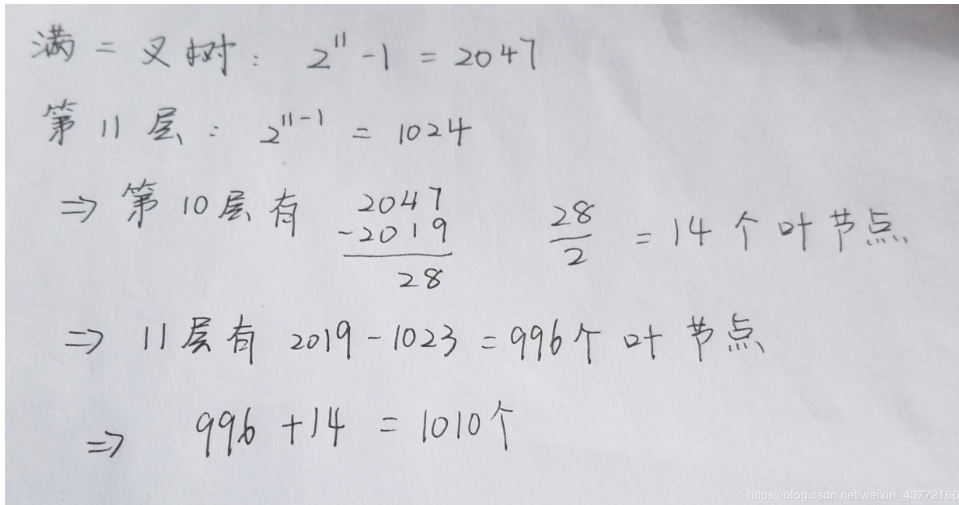 满二叉树: 2^11 - 1 = 2047
第11层: 2^11-1 = 1024
⇒ 第10层有 2047 - 2019 28 28/2 = 14个叶节点
⇒ 11层有 2019 - 1023 = 996个叶节点
⇒ 996 + 14 = 1010个
https://blog.csdn.net/weixin_43772166